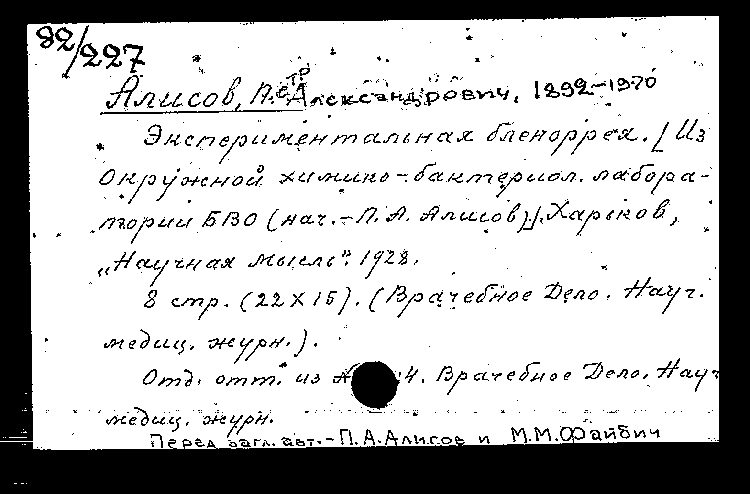 82/227
Алисов, Петр Александрович, 1892-1970
Экспериментальная бленоррея. [Из
окружной химико-бактериол. лабора-
тории БВО (нач. - П.А. Алисов)]. Харьков,
„Научная мысль". 1928.
8 стр. (22x15). (Врачебное Дело. Науч.
медиц. журн.).
Отд. отт. из 4. Врачебное Дело. Науч
медиц. журн.
Перед загл. авт. - П.А.Алисов и М.М.Файбич